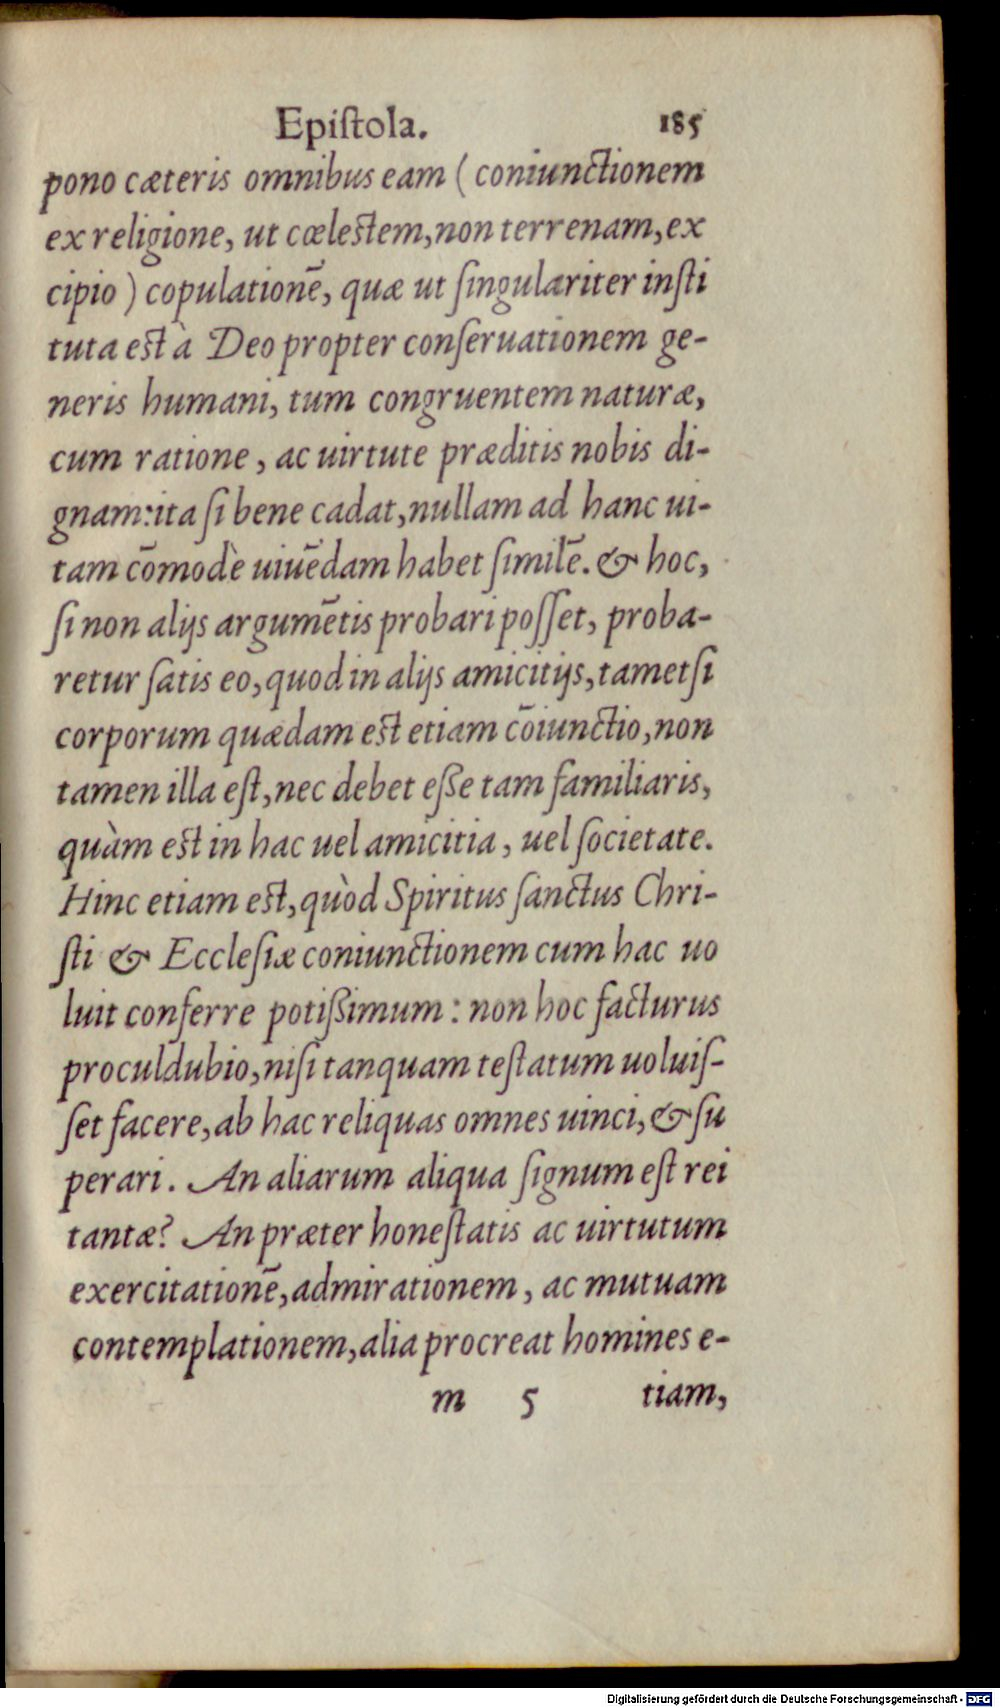 Epiſtola. 185
pono cæteris omnibus eam (coniunctionem
ex religione, ut cœlestem, non terrenam, ex
cipio) copulationē, quæ ut ſingulariter inſti
tuta est à Deo propter conſeruationem ge-
neris humani, tum congruentem naturæ,
cum ratione, ac uirtute præditis nobis di-
gnam: ita ſi bene cadat, nullam ad hanc ui-
tam cōmodè uiuēdam habet ſimilē. & hoc,
ſi non alijs argumētis probari poſſet, proba-
retur ſatis eo, quod in alijs amicitijs, tametſi
corporum quædam est etiam cōiunctio, non
tamen illa eſt, nec debet eſſe tam familiaris,
quàm est in hac uel amicitia, uel ſocietate.
Hinc etiam est, quòd Spiritus ſanctus Chri-
ſti & Eccleſiæ coniunctionem cum hac uo
luit conferre potißimum: non hoc facturus
proculdubio, niſi tanquam teſtatum uoluiſ-
ſet facere, ab hac reliquas omnes uinci, & ſu
perari. An aliarum aliqua ſignum eſt rei
tantæ? An præter honeſtatis ac uirtutum
exercitationē, admirationem, ac mutuam
contemplationem, alia procreat homines e-
m 5 tiam,
Digitalisierung gefördert durch die Deutsche Forschungsgemeinschaft - DFG